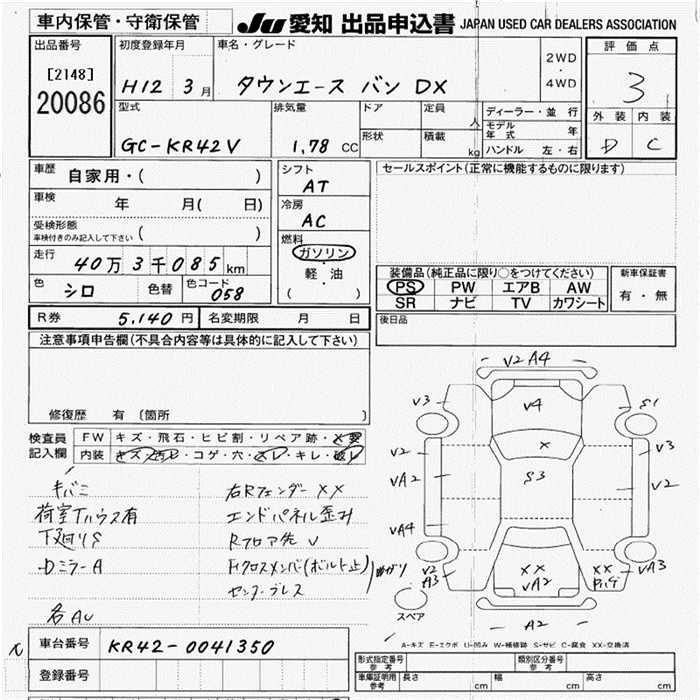 車内保管・守衛保管
JU 愛知 出品申込書 JAPAN USED CAR DEALERS ASSOCIATION
出品番号
[2148]
20086
初度登録年月
H12 3月
車名・グレード
タウンエース バン DX
2WD
・
4WD
評価点
3
外装 内装
D C
型式
GC-KR42V
排気量
1,78 CC
ドア
形状
定員
人
積載
kg
ディーラー・並行
モデル年式 年
ハンドル 左・右
車歴 自家用・( )
車検 年 月( 日)
受検形態
車検付きのみ記入して下さい ( )
走行 40万3千085km
色 シロ 色替 色コード 058
シフト
AT
冷房
AC
燃料
ガソリン
・
軽・油
( )
セールスポイント(正常に機能するものに限ります)
装備品(純正品に限り○をつけてください)
PS PW エアB AW
SR ナビ TV カワシート
新車保証書
有・無
後日品
R券 5,140円 名変期限 月 日
注意事項申告欄(不具合内容等は具体的に記入して下さい)
修復歴 有 〔箇所 〕
検査員
記入欄
FW キズ・飛石・ヒビ割・リペア跡・X要
内装 キズ・汚レ・コゲ・穴・スレ・キレ・破レ
キバミ 右Rフェンダー XX
荷室Tハウス有 エンドパネル歪み
下廻りS Rフロア先 V
Dミラー A Fクロスメンバ(ボルト止)
センターブレス
各AU
V2 A4
V3
V4
S1
V2
X
V3
VA2
S3
V2
VA4
V2
A3
XX
VA2
XX
VA3
スペア
A2
A-キズ E-エクボ U-凹み W-補修跡 S-サビ C-腐食 XX-交換済
車台番号 KR42-0041350
登録番号
形式指定番号
参考
類別区分番号
参考
車庫証明用
参考
長さ cm 幅 cm 高さ cm